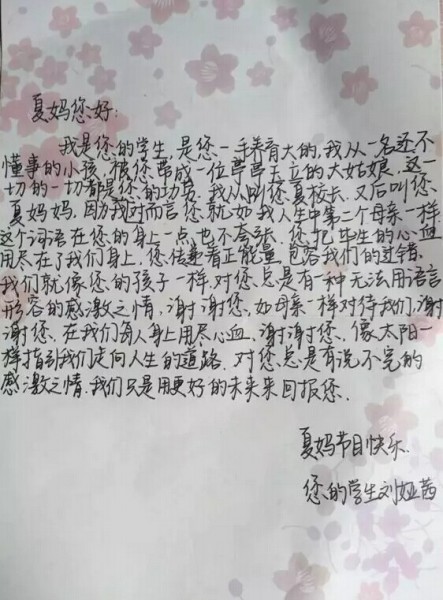 夏妈您好:
我是您的学生,是您一手养育大的,我从一名还不
懂事的小孩,被您带成一位亭亭玉立的大姑娘,这一
切的一切都是您的功劳,我从叫您夏校长,又后叫您
夏妈妈,因为我对而言您就如我人生中第二个母亲一样
这个词语在您的身上一点也不夸张,您把毕生的心血
用尽在了我们身上,您传递着正能量,包容我们的过错,
我们就像您的孩子一样,对您总是有一种无法用语言
形容的感激之情,谢谢您,如母亲一样对待我们,谢
谢您,在我们每人身上用尽心血,谢谢您,像太阳一
样指引我们走向人生的道路,对您总是有说不完的
感激之情,我们只是用更好的未来来回报您.
夏妈节日快乐.
您的学生刘娅茜